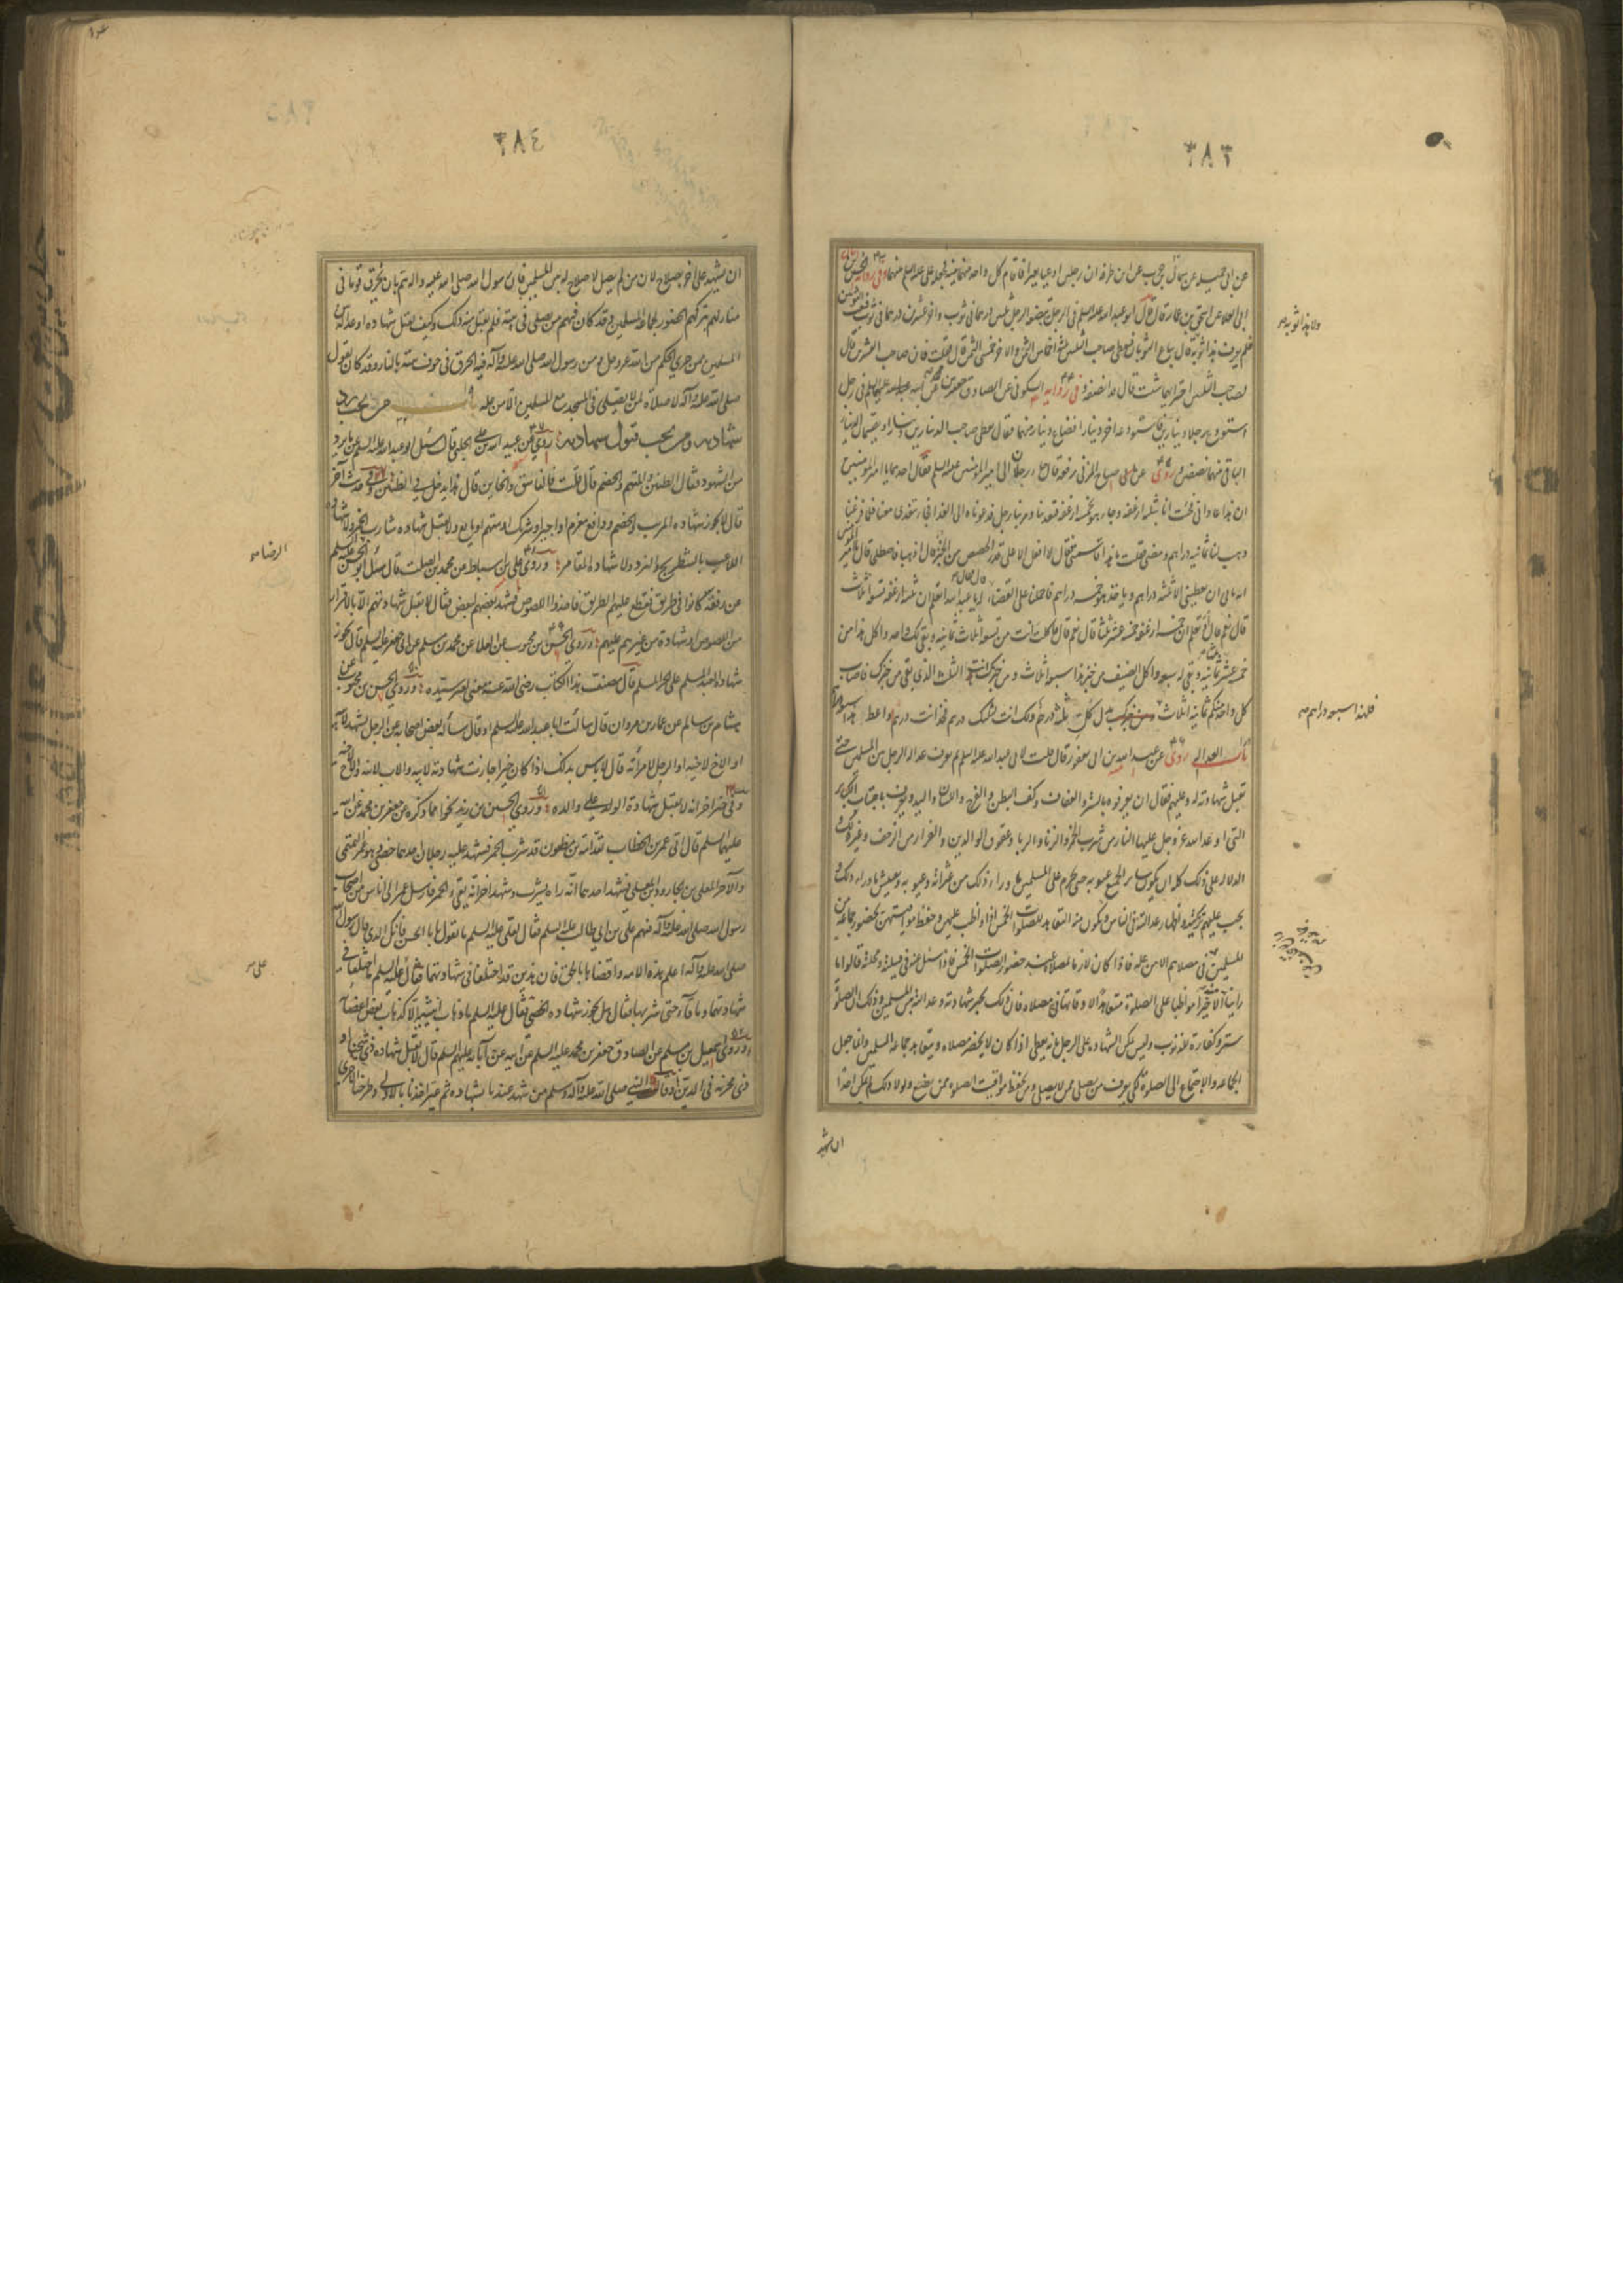 ٣٨٣
عن ابى جميلة عن سماك بن حرب عن ابن طرفة ان رجلين ادعيا بعيرا فاقام كل واحد منهما بينة فجعله على عليه السلم بينهما وفي رواية الحسين بن
ابى العلا عن اسحق بن عمار قال قال ابو عبد الله عليه السلم فى الرجل يبضعه الرجل ثلثين درهما فى ثوب واخر عشرين درهما فى ثوب فبعث الثوبين
فلم يعرف هذا ثوبه قال يباع الثوبان فيعطى صاحب الثلثين ثلثة اخماس الثمن والاخر خمسى الثمن قال قلت فان صاحب العشرين قال
لصاحب الثلثين اختر ايهما شئت قال قد انصفه وفى رواية السكونى عن الصادق جعفر بن محمد عن ابيه عليهما السلم فى رجل
استودع رجلا دينارين فاستودعه اخر دينارا فضاع دينار منها فقال يعطى صاحب الدينارين دينارا ويقسمان الدينار
الباقى بينهما نصفين وروى عن صباح المزنى رفعه قال جاء رجلان الى امير المؤمنين عليه السلم فقال احدهما يا امير المؤمنين
ان هذا غادانى فجئت انا بثلثة ارغفة وجاء هو بخمسة ارغفة فتغدينا ومر بنا رجل فدعوناه الى الغداء فجاء فتغدى معنا فلما فرغنا
وهب لنا ثمانية دراهم ومضى فقلت يا هذا قاسمنى فقال لا افعل الا على قدر الحصص من الخبز قال اذهبا فاصطلحا قال يا امير المؤمنين
انه يابى ان يعطينى الا ثلثة دراهم وياخذ هو خمسة دراهم فاحملنا على القضاء قال فقال له يا عبد الله اتعلم ان ثلثة ارغفة تسعة اثلاث
قال نعم قال وتعلم ان خمسة ارغفة خمسة عشر ثلثا قال نعم قال فاكلت انت من تسعة اثلاث ثمانية وبقى لك واحد واكل هذا من
خمسة عشر ثمانية وبقى له سبعة واكل الضيف من خبز هذا سبعة اثلاث ومن خبزك انت الثلث الذى بقى من خبزك فاصاب
كل واحد منكم ثمانية اثلاث فلهذا سبعة دراهم بدل كل ثلث درهم ولك انت لثلثك درهم فخذ انت درهما واعط هذا سبعة دراهم
باب العدالة روى عن عبد الله بن ابى يعفور قال قلت لابى عبد الله عليه السلم بم يعرف عدالة الرجل بين المسلمين حتى
تقبل شهادته له وعليهم فقال ان يعرفوه بالستر والعفاف وكف البطن والفرج واليد واللسان ويعرف باجتناب الكباير
التى اوعد الله عز وجل عليها النار من شرب الخمر والزنا والربا وعقوق الوالدين والفرار من الزحف وغير ذلك و
الدلالة على ذلك كله ان يكون ساتر الجميع عيوبه حتى يحرم على المسلمين ما وراء ذلك من عثراته وعيوبه وتفتيش ما وراء ذلك و
يجب عليهم تزكيته واظهار عدالته فى الناس ويكون منه التعاهد للصلوات الخمس اذا واظب عليهن وحفظ مواقيتهن بحضور جماعة من
المسلمين فى مصلاهم الا من علة فاذا كان لازما لمصلاه عند حضور الصلوات الخمس فاذا سئل عنه فى قبيلته ومحلته قالوا ما
راينا منه الا خيرا مواظبا على الصلوة متعاهدا لاوقاتها فى مصلاه فان ذلك يجيز شهادته وعدالته بين المسلمين وذلك ان الصلوة
ستر وكفارة للذنوب وليس يمكن الشهادة على الرجل بانه يصلى اذا كان لا يحضر مصلاه ويتعاهد جماعة المسلمين وانما جعل
الجماعة والاجتماع الى الصلوة لكى يعرف من يصلى ممن لا يصلى ومن يحفظ مواقيت الصلوة ممن يضيع ولولا ذلك لم يمكن احدا
ان يشهد
ولا هذا ثوبه صح
فلهذا سبعة دراهم صح
٣٨٤
ان يشهد على اخر بصلاح لان من لم يصل لا صلاح له بين المسلمين فان رسول الله صلى الله عليه واله هم بان يحرق قوما فى
منازلهم بتركهم الحضور لجماعة المسلمين وقد كان فيهم من يصلى فى بيته فلم يقبل منه ذلك وكيف يقبل شهادة او عدالة بين
المسلمين ممن جرى الحكم من الله عز وجل ومن رسول الله صلى الله عليه وآله فيه الحرق فى جوف بيته بالنار وقد كان يقول
صلى الله عليه وآله لا صلاة لمن لا يصلى فى المسجد مع المسلمين الا من علة باب من يجب رد
شهادته ومن يجب قبول شهادته روى عن عبيد الله بن على الحلبى قال سئل ابو عبد الله عليه السلم عما يرد
من الشهود فقال الظنين والمتهم والخصم قال قلت فالفاسق والخاين قال هذا يدخل فى الظنين وفى حديث آخر
قال لا يجوز شهادة المريب والخصم ودافع مغرم او اجير او شريك او متهم او بايع ولا تقبل شهادة شارب الخمر ولا شهادة
اللاعب بالشطرنج والنرد ولا شهادة المقامر وروى على بن اسباط عن محمد بن الصلت قال سئل ابو الحسن عليه السلم
عن رفقة كانوا فى طريق فقطع عليهم الطريق فاخذوا اللصوص فشهد بعضهم لبعض فقال لا تقبل شهادتهم الا بالاقرار
من اللصوص او شهادة من غيرهم عليهم وروى الحسن بن محبوب عن العلا عن محمد بن مسلم عن ابى جعفر عليه السلم قال يجوز
شهادة العبد المسلم على الحر المسلم قال مصنف هذا الكتاب رضى الله عنه يعنى لغير سيده وروى الحسن بن محبوب عن
هشام بن سالم عن عمار بن مروان قال سالت ابا عبد الله عليه السلم او قال سأله بعض اصحابه عن الرجل يشهد لابيه
او الاخ لاخيه او الرجل لامرأته قال لا بأس بذلك اذا كان خيرا جازت شهادته لابيه والاب لابنه والاخ لاخيه
وفى خبر اخر انه لا تقبل شهادة الولد على والده وروى الحسن بن زيد نحوا مما ذكره عن جعفر بن محمد عن ابيه
عليهما السلم قال اتى عمر بن الخطاب بقدامة بن مظعون قد شرب الخمر فشهد عليه رجلان احدهما خصى وهو عمر التميمى
والآخر المعلى بن الجارود فشهد احدهما انه راه يشرب وشهد اخر انه يقئ الخمر فارسل عمر الى اناس من اصحاب
رسول الله صلى الله عليه وآله فيهم على بن ابى طالب عليه السلم فقال لعلى عليه السلم ما تقول يا ابا الحسن فانك الذى قال رسول الله
صلى الله عليه وآله اعلم هذه الامة واقضاها بالحق فان هذين قد اختلفا فى شهادتهما فقال عليه السلم ما اختلفا فى
شهادتهما وما قآء حتى شربها فقال هل يجوز شهادة الخصى فقال عليه السلم ما ذهاب انثييه الا كذهاب بعض اعضائه
وروى اسمعيل بن مسلم عن الصادق جعفر بن محمد عليه السلم عن ابيه عن آبائه عليهم السلم قال لا تقبل شهادة ذى شحناء او
ذى مخزية فى الدين وقال النبى صلى الله عليه وآله وسلم من شهد عندنا بشهادة ثم غير اخذنا بالاولى وطرحنا الاخرى
الرضا صح
على صح